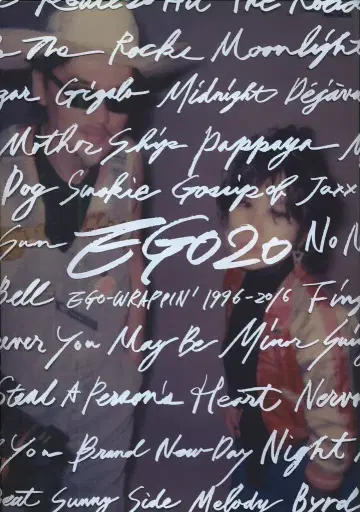 Route 20 Hit The Road
The Rocks Moonlight
Gigalo Midnight Déjàvu
Mother Ship Pappaya
Dog Smokie Gossip of Jaxx
Sun EGO20 No N
Bell EGO-WRAPPIN' 1996-2016 Fin
ever You May Be Minor Swing
Steal A Person's Heart Nervo
You Brand New-Day Night
Beat Sunny Side Melody Byrd